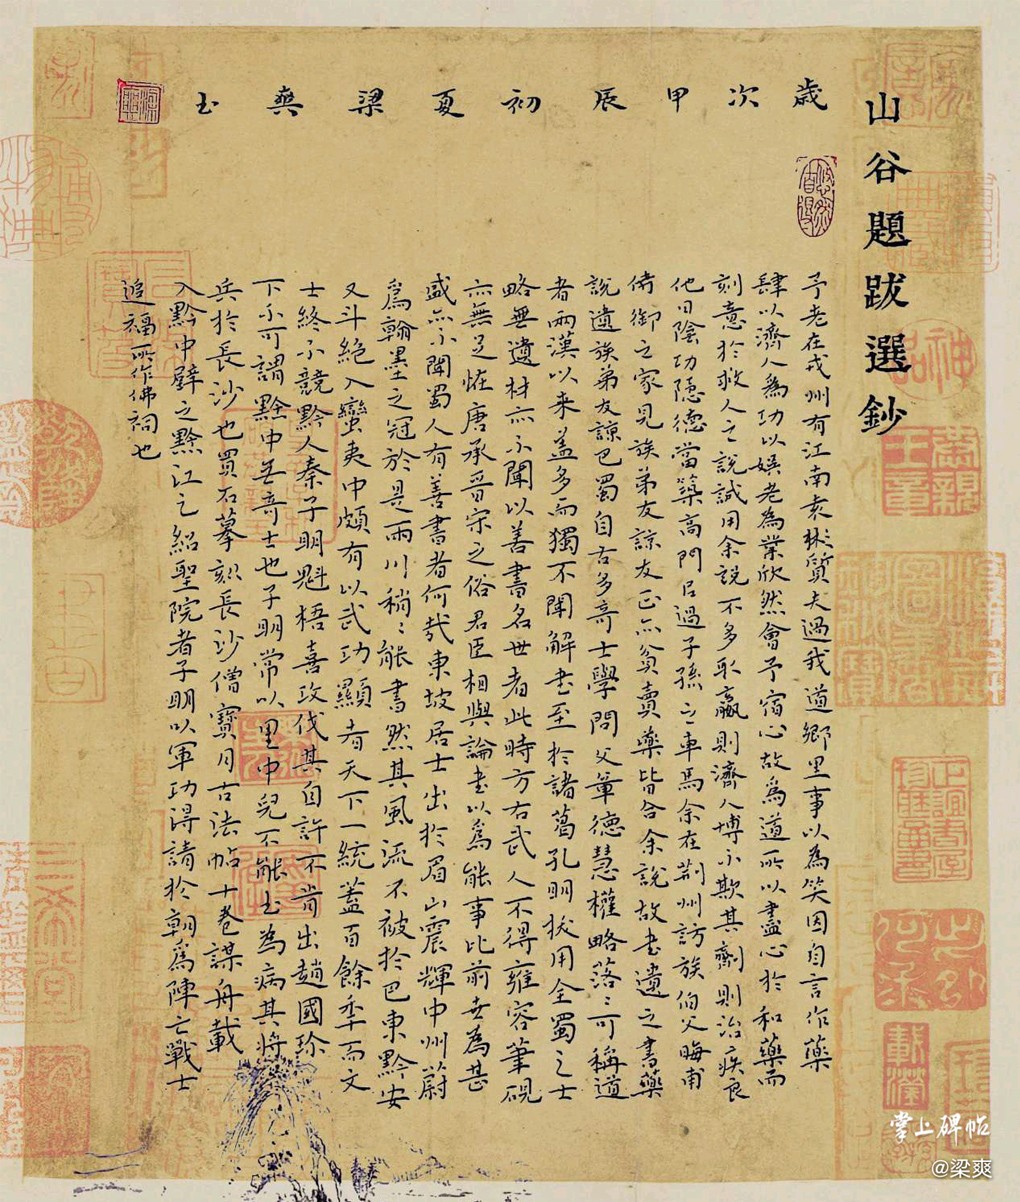 山谷題跋選鈔
歲次甲辰初夏梁爽書
悠然自得
予老在戎州有江南袁彬質夫過我道鄉里事以為笑因自言作藥
肆以濟人為功以娛老為業欣然會予宿心故為道所以盡心於和藥而
刻意於救人之說誠用余說不多取贏則濟人博不欺其劑則治疾良
他日陰功隱德當築高門呂過子孫之車馬余在荆州訪族伯父晦甫
侍御之家見族弟友諒友正亦貧賣藥皆合余說故書遺之書藥
說遺族弟友諒巴蜀自古多奇士學問父章德慧權略落〻可稱道
者兩漢以来蓋多而獨不聞解書至於諸葛孔明拔用全蜀之士
略無遺材亦不聞以善書名世者此時方右武人不得雍容筆硯
亦無足恠唐承晉宋之俗君臣相與論書以為能事比前世為甚
盛亦不聞蜀人有善書者何哉東坡居士出於眉山震輝中州蔚
為翰墨之冠於是兩川稍〻能書然其風流不被於巴東黔安
又斗絕入蠻夷中頗有以武功顯者天下一統蓋百餘年而文
士終不競黔人秦子明魁梧喜攻伐其自許不肯出趙國珍
下不可謂黔中無奇士也子明常以里中兒不能書為病其將
兵於長沙也買石摹刻長沙僧寶月古法帖十卷謀舟載
入黔中壁之黔江之紹聖院者子明以軍功得請於朝為陣亡戰士
追福所作佛祠也
掌上碑帖
@梁爽